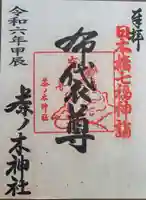 奉拝
日本橋七福神詣
布袋尊
茶ノ木神社
令和六年甲辰
茶ノ木神社